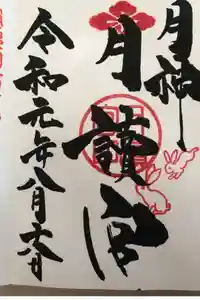 月神
月讀宮
令和元年八月